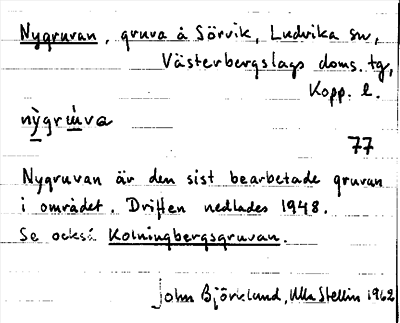 Nygruvan, gruva å Sörvik, Ludvika sn,
Västerbergslags doms. tg,
Kopp. l.
nỳgrúva
77
Nygruvan är den sist bearbetade gruvan
i området. Driften nedlades 1948.
Se också Kolningbergsgruvan.
John Björklund, Ulla Stellin 1962